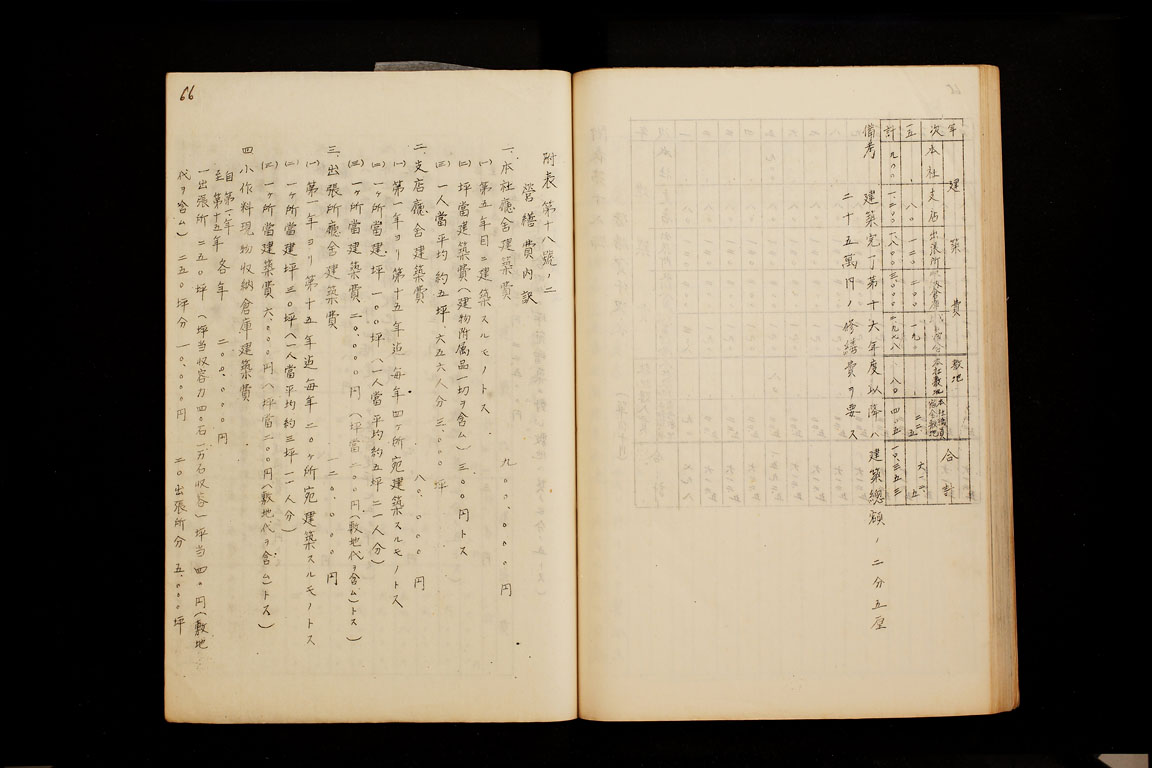 年次
建築費
敷地
合計
本社
支店
出張所
本社敷地
一五
八〇
一二〇
二〇〇
一九
計
九〇〇
一、二〇〇
一、八〇〇
三、〇〇〇
八〇
備考
建築完了第十六年度以降ハ建築總額ノ二分五厘
二十五萬円ノ修繕費ヲ要ス
附表第十八號ノ二
營繕費内訳
一、本社廳舎建築費 九〇〇、〇〇〇円
(一) 第五年目ニ建築スルモノトス
(二) 坪當建築費(建物附属品一切ヲ含ム)三〇〇円トス
(三) 一人當平均約五坪、六五六人分三、〇〇〇坪
二、支店廳舎建築費 八〇、〇〇〇円
(一) 第一年ヨリ第十五年迠毎年四ヶ所宛建築スルモノトス
(二) 一ヶ所當建坪 一〇〇坪(一人當平均約五坪 二一人分)
(三) 一ヶ所當建築費 二〇、〇〇〇円(坪當二〇〇円(敷地代ヲ含ム)トス)
三、出張所廳舎建築費 一二〇、〇〇〇円
(一) 第一年ヨリ第十五年迠毎年二〇ヶ所宛建築スルモノトス
(二) 一ヶ所當建坪三〇坪(一人當平均約三坪 一一人分)
(三) 一ヶ所當建築費六、〇〇〇円(坪當二〇〇円(敷地代ヲ含ム)トス)
四、小作料現物収納倉庫建築費
自第一年至第十五年各年 二〇〇、〇〇〇円
一出張所 二五〇坪(坪当収容力四〇石一万石収容)坪当四〇円(敷地
代ヲ含ム)二五〇坪分 一〇、〇〇〇円 二〇出張所分 五、〇〇〇坪
66